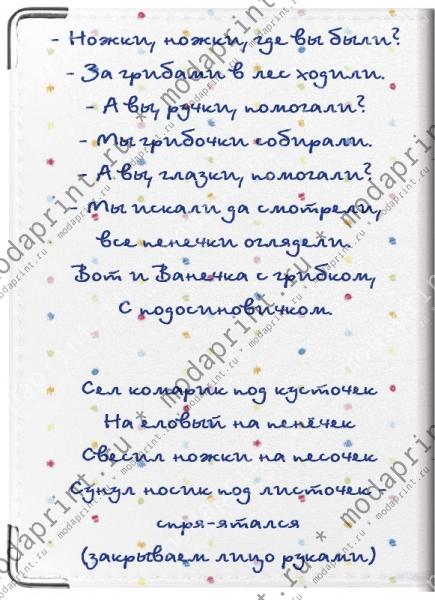 - Ножки, ножки, где вы были?
- За грибами в лес ходили.
- А вы, ручки, помогали?
- Мы грибочки собирали.
- А вы, глазки, помогали?
- Мы искали да смотрели,
все пенечки оглядели.
Вот и Ванечка с грибком,
С подосиновичком.
Сел комарик под кусточек
На еловый на пенёчек
Свесил ножки на песочек
Сунул носик под листочек -
спря-ятался
(закрываем лицо руками)